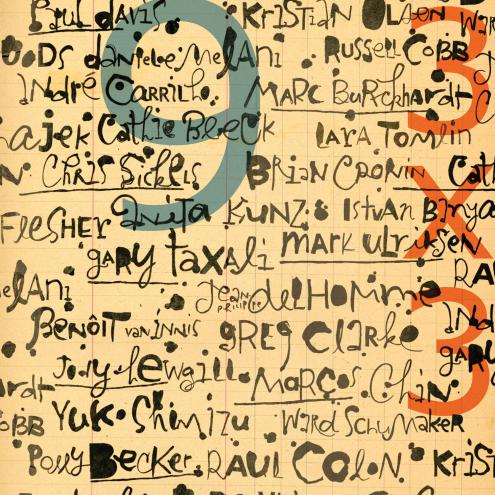 Paul Davis. Kristian Olsen
daniele Melani Russell Cobb
André Carrilho. Marc Burckhardt
Cathie Bleck Lara Tomlin
Chris Sickels Brian Cronin
Flesher Anita Kunz Istvan
gary taxali mark ulriksen
elani Jean philippe delhomme
Benoît van innis greg clarke
Jody Hewgill Marcos Chin.
obb Yuko Shimizu Ward Schumaker
Polly Becker. Raul Colon.
9
3x3